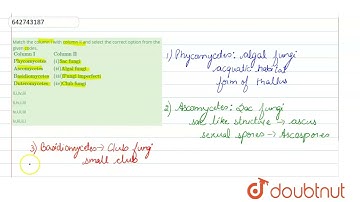 642743187
Match the column I with column II and select the correct option from the given codes.
Column I Column II
Phycomycetes (i)Sac fungi
Ascomycetes (ii)Algal fungi
Basidiomycetes (iii)Fungi imperfecti
Deuteromycetes (iv)Club fungi
1) Phycomycetes: algal fungi
acquatic habitat
form of thallus
2) Ascomycetes: Sac fungi
sac like structure → ascus
sexual spores → Ascospores
3) Basidiomycetes → Club fungi
small club
doubtnut